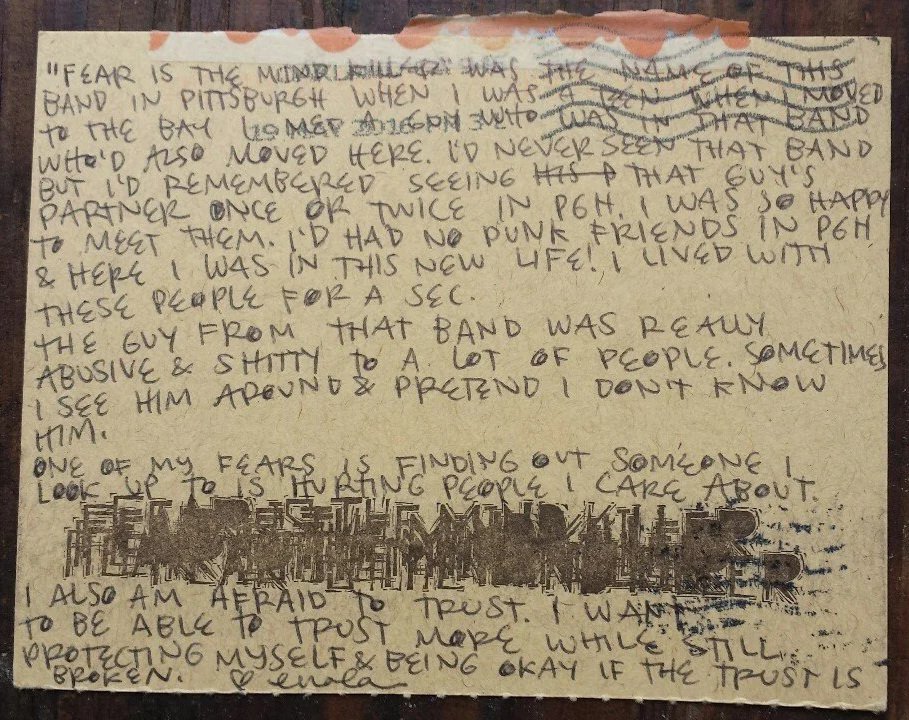 "FEAR IS THE MIND KILLER" WAS THE NAME OF THIS
BAND IN PITTSBURGH WHEN I WAS A TEEN WHEN I MOVED
TO THE BAY I MET A GUY WHO WAS IN THAT BAND
WHO'D ALSO MOVED HERE. I'D NEVER SEEN THAT BAND
BUT I'D REMEMBERED SEEING HIS P THAT GUY'S
PARTNER ONCE OR TWICE IN PGH. I WAS SO HAPPY
TO MEET THEM. I'D HAD NO PUNK FRIENDS IN PGH
& HERE I WAS IN THIS NEW LIFE! I LIVED WITH
THESE PEOPLE FOR A SEC.
THE GUY FROM THAT BAND WAS REALLY
ABUSIVE & SHITTY TO A LOT OF PEOPLE. SOMETIMES
I SEE HIM AROUND & PRETEND I DON'T KNOW
HIM.
ONE OF MY FEARS IS FINDING OUT SOMEONE I
LOOK UP TO IS HURTING PEOPLE I CARE ABOUT.
FEAR IS THE MIND KILLER.
I ALSO AM AFRAID TO TRUST. I WANT
TO BE ABLE TO TRUST MORE WHILE STILL
PROTECTING MYSELF & BEING OKAY IF THE TRUST IS
BROKEN.